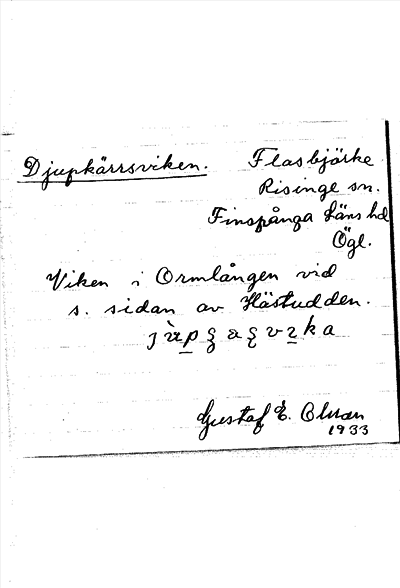 Djupkärrsviken. Flasbjörke
Risinge sn.
Finspånga Läns hd
Ögl.
Viken i Ormlången vid
s. sidan av Hästudden.
Gustaf E.
1933